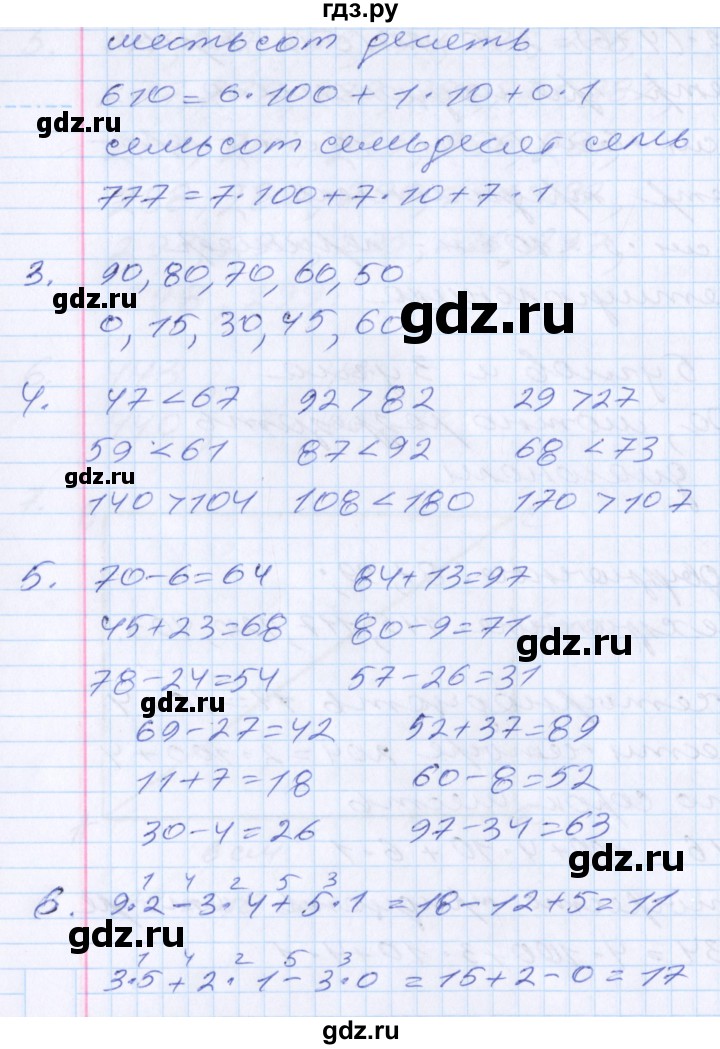 гдз.ру
шестьсот десять
610 = 6·100 + 1·10 + 0·1
gdz.ru
семьсот семьдесят семь
gdz.ru
777 = 7·100 + 7·10 + 7·1
3. 90, 80, 70, 60, 50
gdz.ru
0, 15, 30, 45, 60
gdz.ru
4. 47 < 67 92 > 82 29 > 27
59 < 61 87 < 92 68 < 73
gdz.ru
140 > 104 108 < 180 170 > 107
5. 70 - 6 = 64 84 + 13 = 97
45 + 23 = 68 80 - 9 = 71
gdz.ru
78 - 24 = 54 57 - 26 = 31
gdz.ru
69 - 27 = 42 52 + 37 = 89
11 + 7 = 18 60 - 8 = 52
30 - 4 = 26 97 - 34 = 63
gdz.ru
1 4 2 5 3
6. 9·2 - 3·4 + 5·1 = 18 - 12 + 5 = 11
gdz.ru
1 4 2 5 3
3·5 + 2·1 - 3·0 = 15 + 2 - 0 = 17
gdz.ru